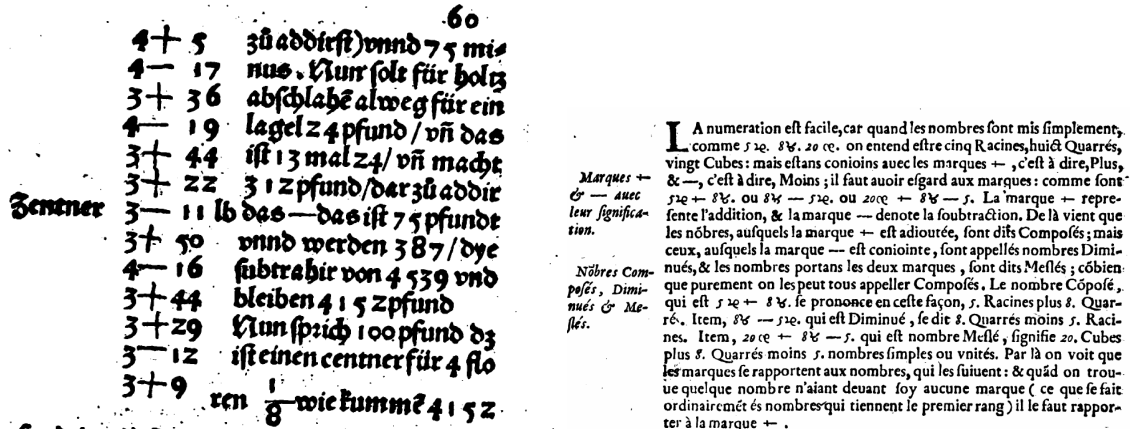 60
4+ 5 zů addirſt)vnnd 75 mi⸗
4— 17 nus. Nun ſolt für holtz
3+ 36 abſchlahē alweg für ein
4— 19 lagel 24 pfund / vñ das
3+ 44 iſt 13 mal 24/ vñ macht
3+ 22 312 pfund/dar zů addir
Zentner 3— 11 lb das — das iſt 75 pfundt
3+ 50 vnnd werden 387/dye
4— 16 ſubtrahir von 4539 vnd
3+44 bleiben 4152 pfund
3+29 Nun ſprich 100 pfund dz
3— 12 iſt einen centner für 4 flo
3+9 ren 1/8 wie kummē 4152
LA numeration eſt facile, car quand les nombres ſont mis ſimplement,
comme 5 8 20 on entend eſtre cinq Racines, huict Quarrés,
vingt Cubes: mais eſtans conioins auec les marques +, c'eſt à dire, Plus,
& —, c'eſt à dire, Moins; il faut auoir eſgard aux marques: comme ſont
5 + 8 ou 8 — 5 ou 20 + 8 — 5. La marque + repre-
ſente l'addition, & la marque — denote la ſoubtraction. De là vient que
les nõbres, auſquels la marque + eſt adioutée, ſont dits Compoſés; mais
ceux, auſquels la marque — eſt coniointe, ſont appellés nombres Dimi-
nués, & les nombres portans les deux marques, ſont dits Meſlés; cõbien
que purement on les peut tous appeller Compoſés. Le nombre Cõpoſé,
qui eſt 5 + 8 ſe prononce en ceſte façon, 5. Racines plus 8. Quar-
rés. Item, 8 — 5 qui eſt Diminué, ſe dit 8. Quarrés moins 5. Raci-
nes. Item, 20 + 8 — 5. qui eſt nombre Meſlé, ſignifie 20. Cubes
plus 8. Quarrés moins 5. nombres ſimples ou vnités. Par là on voit que
les marques ſe rapportent aux nombres, qui les ſuiuent: & quãd on trou-
ue quelque nombre n'aiant deuant ſoy aucune marque ( ce que ſe fait
ordinairemẽt és nombres qui tiennent le premier rang ) il le faut rappor-
ter à la marque +,
Marques +
& — auec
leur ſignifica-
tion.
Nõbres Com-
poſés, Dimi-
nués & Me-
ſlés.